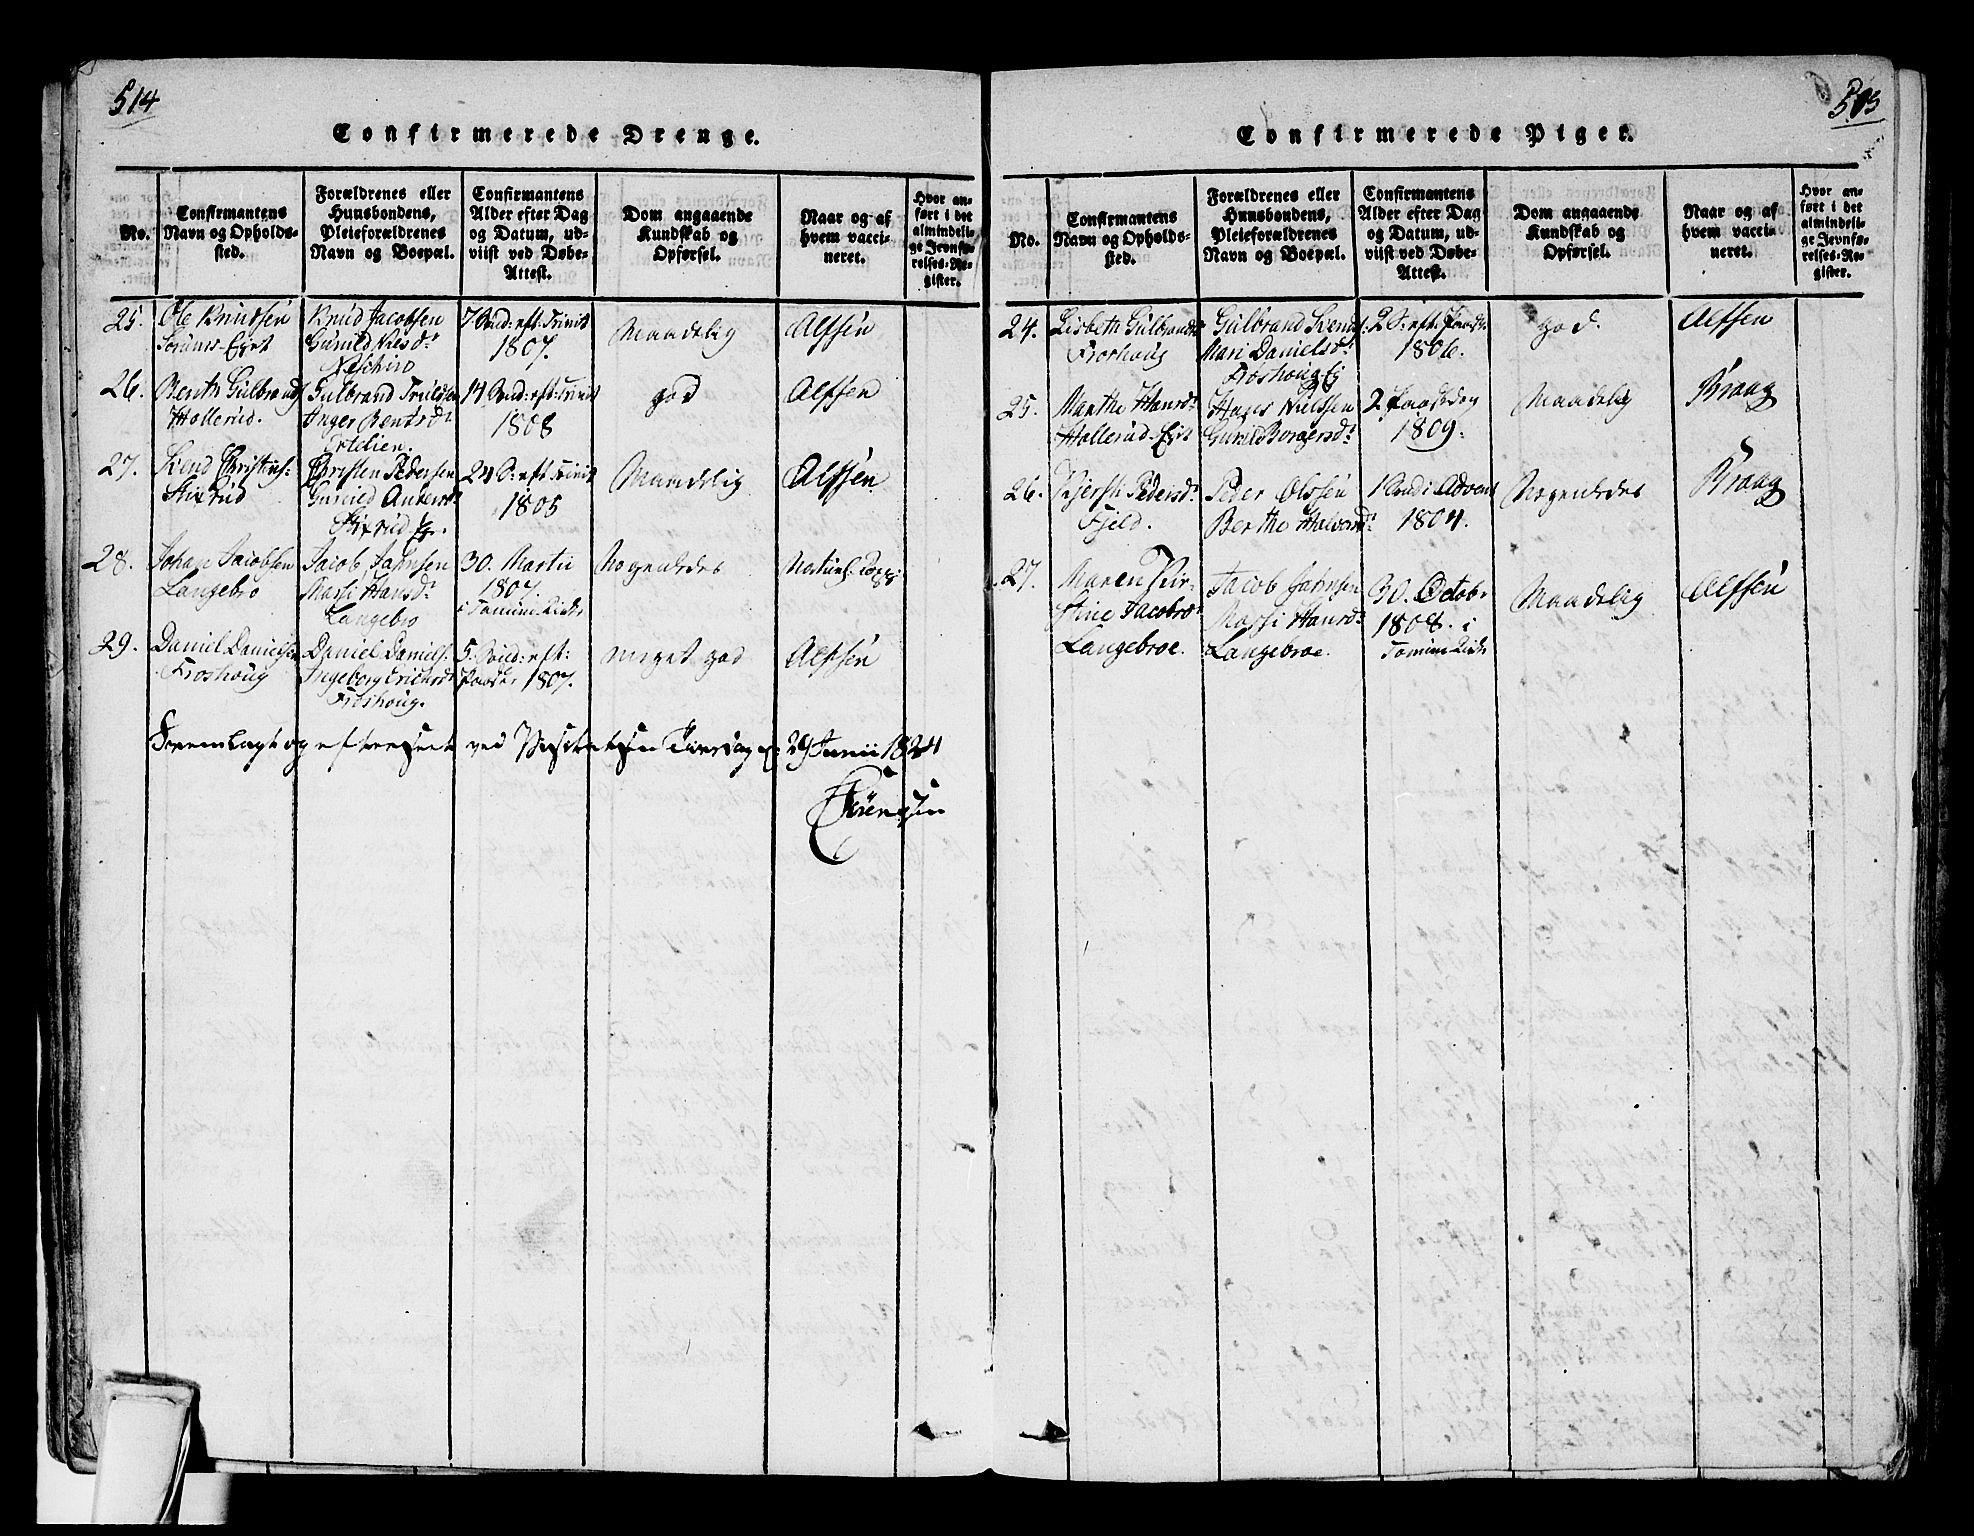 514
Confirmerede Drenge.
No.
Confirmantens
Navn og Opholds-
sted.
Forældrenes eller
Huusbondens,
Pleieforældrenes
Navn og Boepæl.
Confirmantens
Alder efter Dag
og Datum, ud-
viist ved Døbe-
Attest.
Dom angaaende
Kundskab og
Opførsel.
Naar og af
hvem vacci-
neret.
Hvor an-
ført i det
almindeli-
ge Jevnfø-
relses-Re-
gister.
25.
Ole Knudsen
Sørums-Eyet
Knud Jacobsen
Gunild Nilsd:
7 Sund: eft: Trinit
1807.
Maadelig
Alfsen
26.
Benth Gulbrands
Hollerud.
Gulbrand Truldsen
Inger Bentsd:
14 Sund: eft: Trinit
1808
god
Alfsen
27.
Svend Christens:
Stixrud
Christen Pedersen
Gunild Andersd:
Stixrud Eg.
24 S: eft: Trinit
1805
Maadelig
Alfsen
28.
Johan Jacobsen
Langebro
Jacob Jahnsen
Massi Hansd:
Langebro
30. Martii
1807.
i Tomini Kirke
Nogenledes
29.
Daniel Danielsen
Froshoug
Daniel Daniels:
Ingeborg Erichsd:
Froshoug.
5. Sund: eft:
Paaske 1807.
meget god
Alfsen
Fremlagt og efterseet ved Visitatsen Tirsdag d: 29 Junii 1824
Sørensen
515
Confirmerede Piger.
No.
Confirmantens
Navn og Opholds-
sted.
Forældrenes eller
Huusbondens,
Pleieforældrenes
Navn og Boepæl.
Confirmantens
Alder efter Dag
og Datum, ud-
viist ved Døbe-
Attest.
Dom angaaende
Kundskab og
Opførsel.
Naar og af
hvem vacci-
neret.
Hvor an-
ført i det
almindeli-
ge Jevnfø-
relses-Re-
gister.
24.
Lisbeth Gulbrandsd:
Froshoug
Gulbrand Svends:
Mari Danielsd:
Froshoug-Eg
2 S: eft: Paaske
1806.
god.
Alfsen
25.
Marthe Hansd:
Hollerud-Eyet
Hans Nielsen
Gunild Borgersd:
2 Paaskedag
1809.
Maadelig
Braag
26.
Kjersti Pedersd:
Fjeld.
Peder Olssen
Berthe Halvorsd:
1 Sund i Advent
1804.
Nogenledes
Braag
27.
Maren Kir-
stine Jacobsd:
Langebroe.
Jacob Jahnsen
Massi Hansd:
Langebroe.
30. Octob.
1808. i
Tomini Kirke
Maadelig
Alfsen